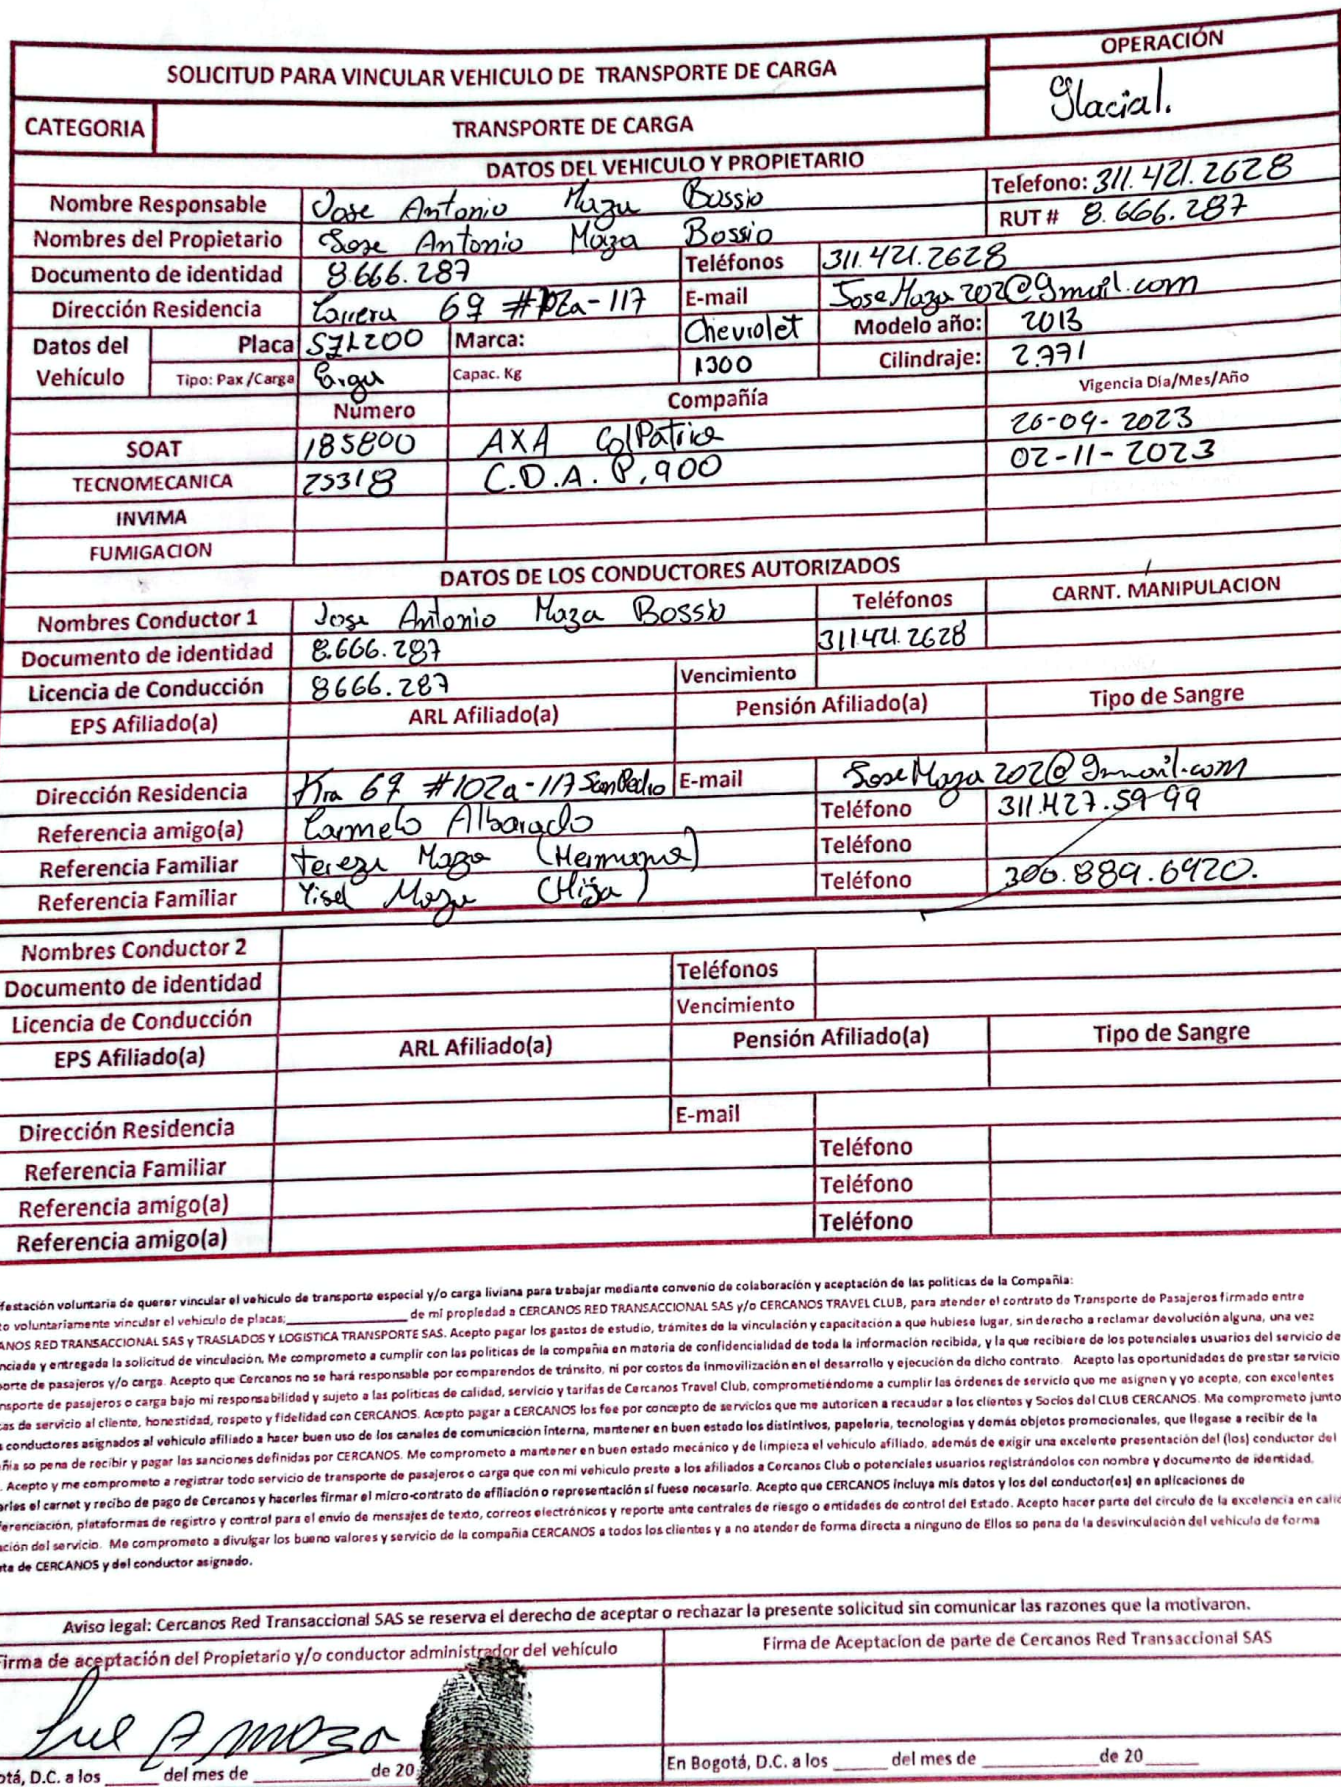 OPERACIÓN
SOLICITUD PARA VINCULAR VEHICULO DE TRANSPORTE DE CARGA
Glacial.
CATEGORIA TRANSPORTE DE CARGA
DATOS DEL VEHICULO Y PROPIETARIO
Nombre Responsable Jose Antonio Maza Bossio Telefono: 311.421.2628
RUT # 8.666.287
Nombres del Propietario Jose Antonio Maza Bossio
Documento de identidad 8.666.287 Teléfonos 311.421.2628
Dirección Residencia Carrera 69 #102a-117 E-mail JoseMaza202@gmail.com
Datos del Vehículo Placa SZL200 Marca: Chevrolet Modelo año: 2013
Tipo: Pax /Carga Carga Capac. Kg 1300 Cilindraje: 2.771
Número Compañía Vigencia Dia/Mes/Año
SOAT 185800 AXA ColPatria 26-09-2023
TECNOMECANICA 25318 C.D.A. P.900 02-11-2023
INVIMA
FUMIGACION
DATOS DE LOS CONDUCTORES AUTORIZADOS
Nombres Conductor 1 Jose Antonio Maza Bossio Teléfonos CARNT. MANIPULACION
Documento de identidad 8.666.287 311.421.2628
Licencia de Conducción 8666.287 Vencimiento
EPS Afiliado(a) ARL Afiliado(a) Pensión Afiliado(a) Tipo de Sangre
Dirección Residencia Kra 67 #102a-117 San Pedro E-mail JoseMaza202@gmail.com
Referencia amigo(a) Carmelo Albarado Teléfono 311.427.5999
Referencia Familiar Tereza Maza (Hermana) Teléfono
Referencia Familiar Yisel Maza (Hija) Teléfono 300.889.6920.
Nombres Conductor 2
Documento de identidad Teléfonos
Licencia de Conducción Vencimiento
EPS Afiliado(a) ARL Afiliado(a) Pensión Afiliado(a) Tipo de Sangre
Dirección Residencia E-mail
Referencia Familiar Teléfono
Referencia amigo(a) Teléfono
Referencia amigo(a) Teléfono
festación voluntaria de querer vincular el vehiculo de transporte especial y/o carga liviana para trabajar mediante convenio de colaboración y aceptación de las politicas de la Compañia:
to voluntariamente vincular el vehiculo de placas;____________ de mi propiedad a CERCANOS RED TRANSACCIONAL SAS y/o CERCANOS TRAVEL CLUB, para atender el contrato de Transporte de Pasajeros firmado entre
ANOS RED TRANSACCIONAL SAS y TRASLADOS Y LOGISTICA TRANSPORTE SAS. Acepto pagar los gastos de estudio, trámites de la vinculación y capacitación a que hubiese lugar, sin derecho a reclamar devolución alguna, una vez
nciada y entregada la solicitud de vinculación. Me comprometo a cumplir con las politicas de la compañia en materia de confidencialidad de toda la información recibida, y la que recibiere de los potenciales usuarios del servicio de
porte de pasajeros y/o carga. Acepto que Cercanos no se hará responsable por comparendos de tránsito, ni por costos de inmovilización en el desarrollo y ejecución de dicho contrato. Acepto las oportunidades de prestar servicio
nsporte de pasajeros o carga bajo mi responsabilidad y sujeto a las politicas de calidad, servicio y tarifas de Cercanos Travel Club, comprometiéndome a cumplir las órdenes de servicio que me asignen y yo acepte, con excelentes
cas de servicio al cliente, honestidad, respeto y fidelidad con CERCANOS. Acepto pagar a CERCANOS los fee por concepto de servicios que me autoricen a recaudar a los clientes y Socios del CLUB CERCANOS. Me comprometo junto
s conductores asignados al vehiculo afiliado a hacer buen uso de los canales de comunicación interna, mantener en buen estado los distintivos, papeleria, tecnologias y demás objetos promocionales, que llegase a recibir de la
ñia so pena de recibir y pagar las sanciones definidas por CERCANOS. Me comprometo a mantener en buen estado mecánico y de limpieza el vehiculo afiliado, además de exigir una excelente presentación del (los) conductor del
. Acepto y me comprometo a registrar todo servicio de transporte de pasajeros o carga que con mi vehiculo preste a los afiliados a Cercanos Club o potenciales usuarios registrándolos con nombre y documento de identidad.
arles el carnet y recibo de pago de Cercanos y hacerles firmar el micro-contrato de afiliación o representación si fuese necesario. Acepto que CERCANOS incluya mis datos y los del conductor(es) en aplicaciones de
ferenciación, plataformas de registro y control para el envio de mensajes de texto, correos electrónicos y reporte ante centrales de riesgo o entidades de control del Estado. Acepto hacer parte del circulo de la excelencia en calid
ación del servicio. Me comprometo a divulgar los bueno valores y servicio de la compañia CERCANOS a todos los clientes y a no atender de forma directa a ninguno de Ellos so pena de la desvinculación del vehiculo de forma
ta de CERCANOS y del conductor asignado.
Aviso legal: Cercanos Red Transaccional SAS se reserva el derecho de aceptar o rechazar la presente solicitud sin comunicar las razones que la motivaron.
Firma de aceptación del Propietario y/o conductor administrador del vehículo Firma de Aceptacion de parte de Cercanos Red Transaccional SAS
otá, D.C. a los _____ del mes de __________ de 20 En Bogotá, D.C. a los _____ del mes de __________ de 20_____